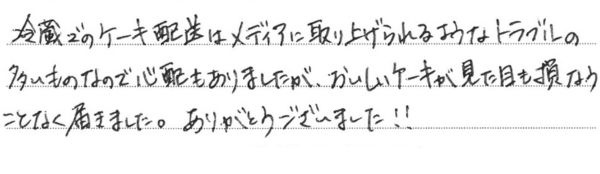 冷蔵でのケーキ配送はメディアに取り上げられるようなトラブルの
多いものなので心配もありましたが、おいしいケーキが見た目も損なう
ことなく届きました。ありがとうございました!!